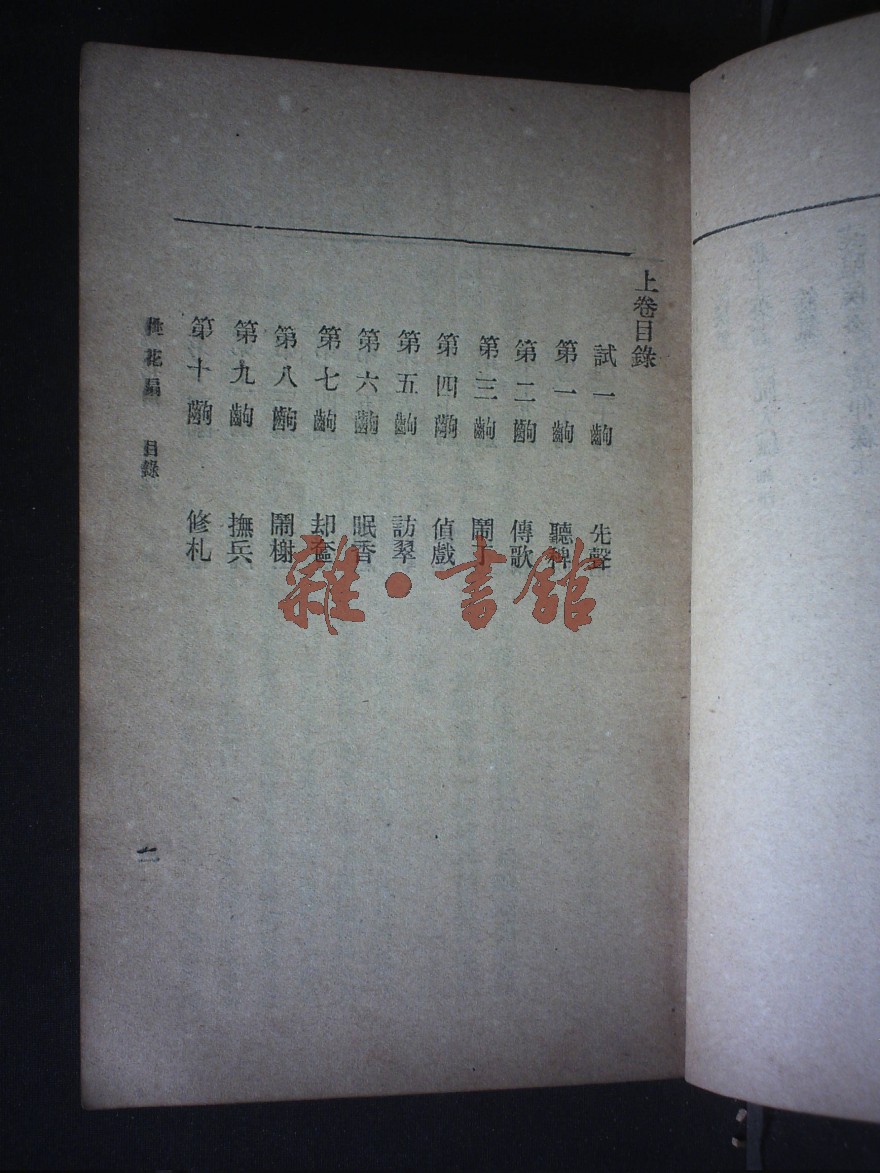 上卷目錄
試一齣 先聲
第一齣 聽稗
第二齣 傳歌
第三齣 鬧丁
第四齣 偵戲
第五齣 訪翠
第六齣 眠香
第七齣 却奩
第八齣 鬧榭
第九齣 撫兵
第十齣 修札
桃花扇 目錄
二
雜·書館